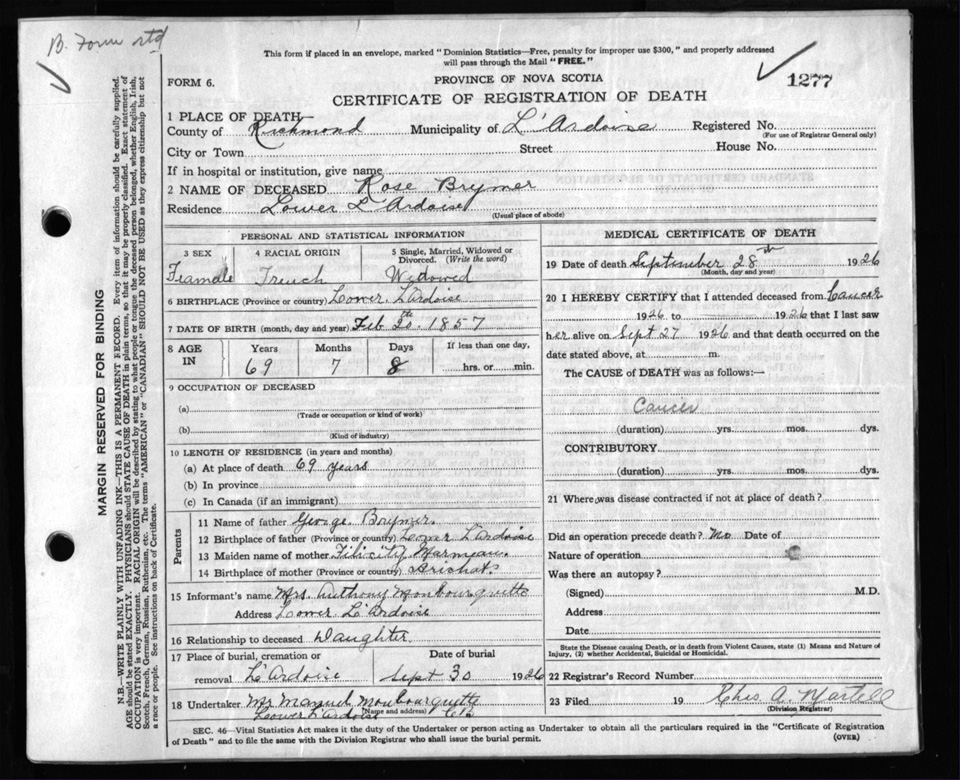 B. Form rtd
This form if placed in an envelope, marked "Dominion Statistics—Free, penalty for improper use $300," and properly addressed
will pass through the Mail "FREE."
FORM 6.
PROVINCE OF NOVA SCOTIA
1277
CERTIFICATE OF REGISTRATION OF DEATH
1 PLACE OF DEATH
County of Richmond Municipality of L'Ardoise Registered No.
(For use of Registrar General only)
City or Town Street House No.
If in hospital or institution, give name
2 NAME OF DECEASED Rose Brymer
Residence Lower L'Ardoise
(Usual place of abode)
PERSONAL AND STATISTICAL INFORMATION
3 SEX 4 RACIAL ORIGIN 5 Single, Married, Widowed or
Divorced. (Write the word)
Feamale French Widowed
6 BIRTHPLACE (Province or country) Lower L'Ardoise
7 DATE OF BIRTH (month, day and year) Feb 20th 1857
8 AGE IN Years Months Days If less than one day,
69 7 8 hrs. or min.
9 OCCUPATION OF DECEASED
(a)
(Trade or occupation or kind of work)
(b)
(Kind of industry)
10 LENGTH OF RESIDENCE (in years and months)
(a) At place of death 69 years
(b) In province
(c) In Canada (if an immigrant)
Parents
11 Name of father George Brymer
12 Birthplace of father (Province or country) Lower L'Ardoise
13 Maiden name of mother Filicity
14 Birthplace of mother (Province or country) Arichat
15 Informant's name Mrs. Anthony Mombourquette
Address Lower L'Ardoise
16 Relationship to deceased Daughter
17 Place of burial, cremation or Date of burial
removal L'Ardoise Sept 30 1926
18 Undertaker Mr Manuel Mombourquette
(Name and address)
Loower L'Ardoise
MEDICAL CERTIFICATE OF DEATH
19 Date of death September 28th 1926
(Month, day and year)
20 I HEREBY CERTIFY that I attended deceased from Cancer
1926 to 1926 that I last saw
her alive on Sept 27 1926 and that death occurred on the
date stated above, at m.
The CAUSE of DEATH was as follows:—
Cancer
(duration) yrs. mos. dys.
CONTRIBUTORY
(duration) yrs. mos. dys.
21 Where was disease contracted if not at place of death?
Did an operation precede death? No Date of
Nature of operation
Was there an autopsy?
(Signed) M.D.
Address
Date
State the Disease causing Death, or in death from Violent Causes, state (1) Means and Nature of
Injury, (2) whether Accidental, Suicidal or Homicidal.
22 Registrar's Record Number
23 Filed 19 Chas A. Martell
(Division Registrar)
SEC. 46—Vital Statistics Act makes it the duty of the Undertaker or person acting as Undertaker to obtain all the particulars required in the "Certificate of Registration
of Death" and to file the same with the Division Registrar who shall issue the burial permit.
(OVER)
MARGIN RESERVED FOR BINDING
N.B.—WRITE PLAINLY WITH UNFADING INK—THIS IS A PERMANENT RECORD. Every item of information should be carefully supplied.
AGE should be stated EXACTLY. PHYSICIANS should STATE CAUSE OF DEATH in plain terms, so that it may be properly classified. Exact statement of
OCCUPATION is very important. RACIAL ORIGIN will be described by stating to what people or tongue the deceased person belonged, whether English, Irish,
Scotch, French, German, Russian, Ruthenian, etc. The terms "AMERICAN" or "CANADIAN" SHOULD NOT BE USED as they express citizenship but not
a race or people. See instructions on back of Certificate.